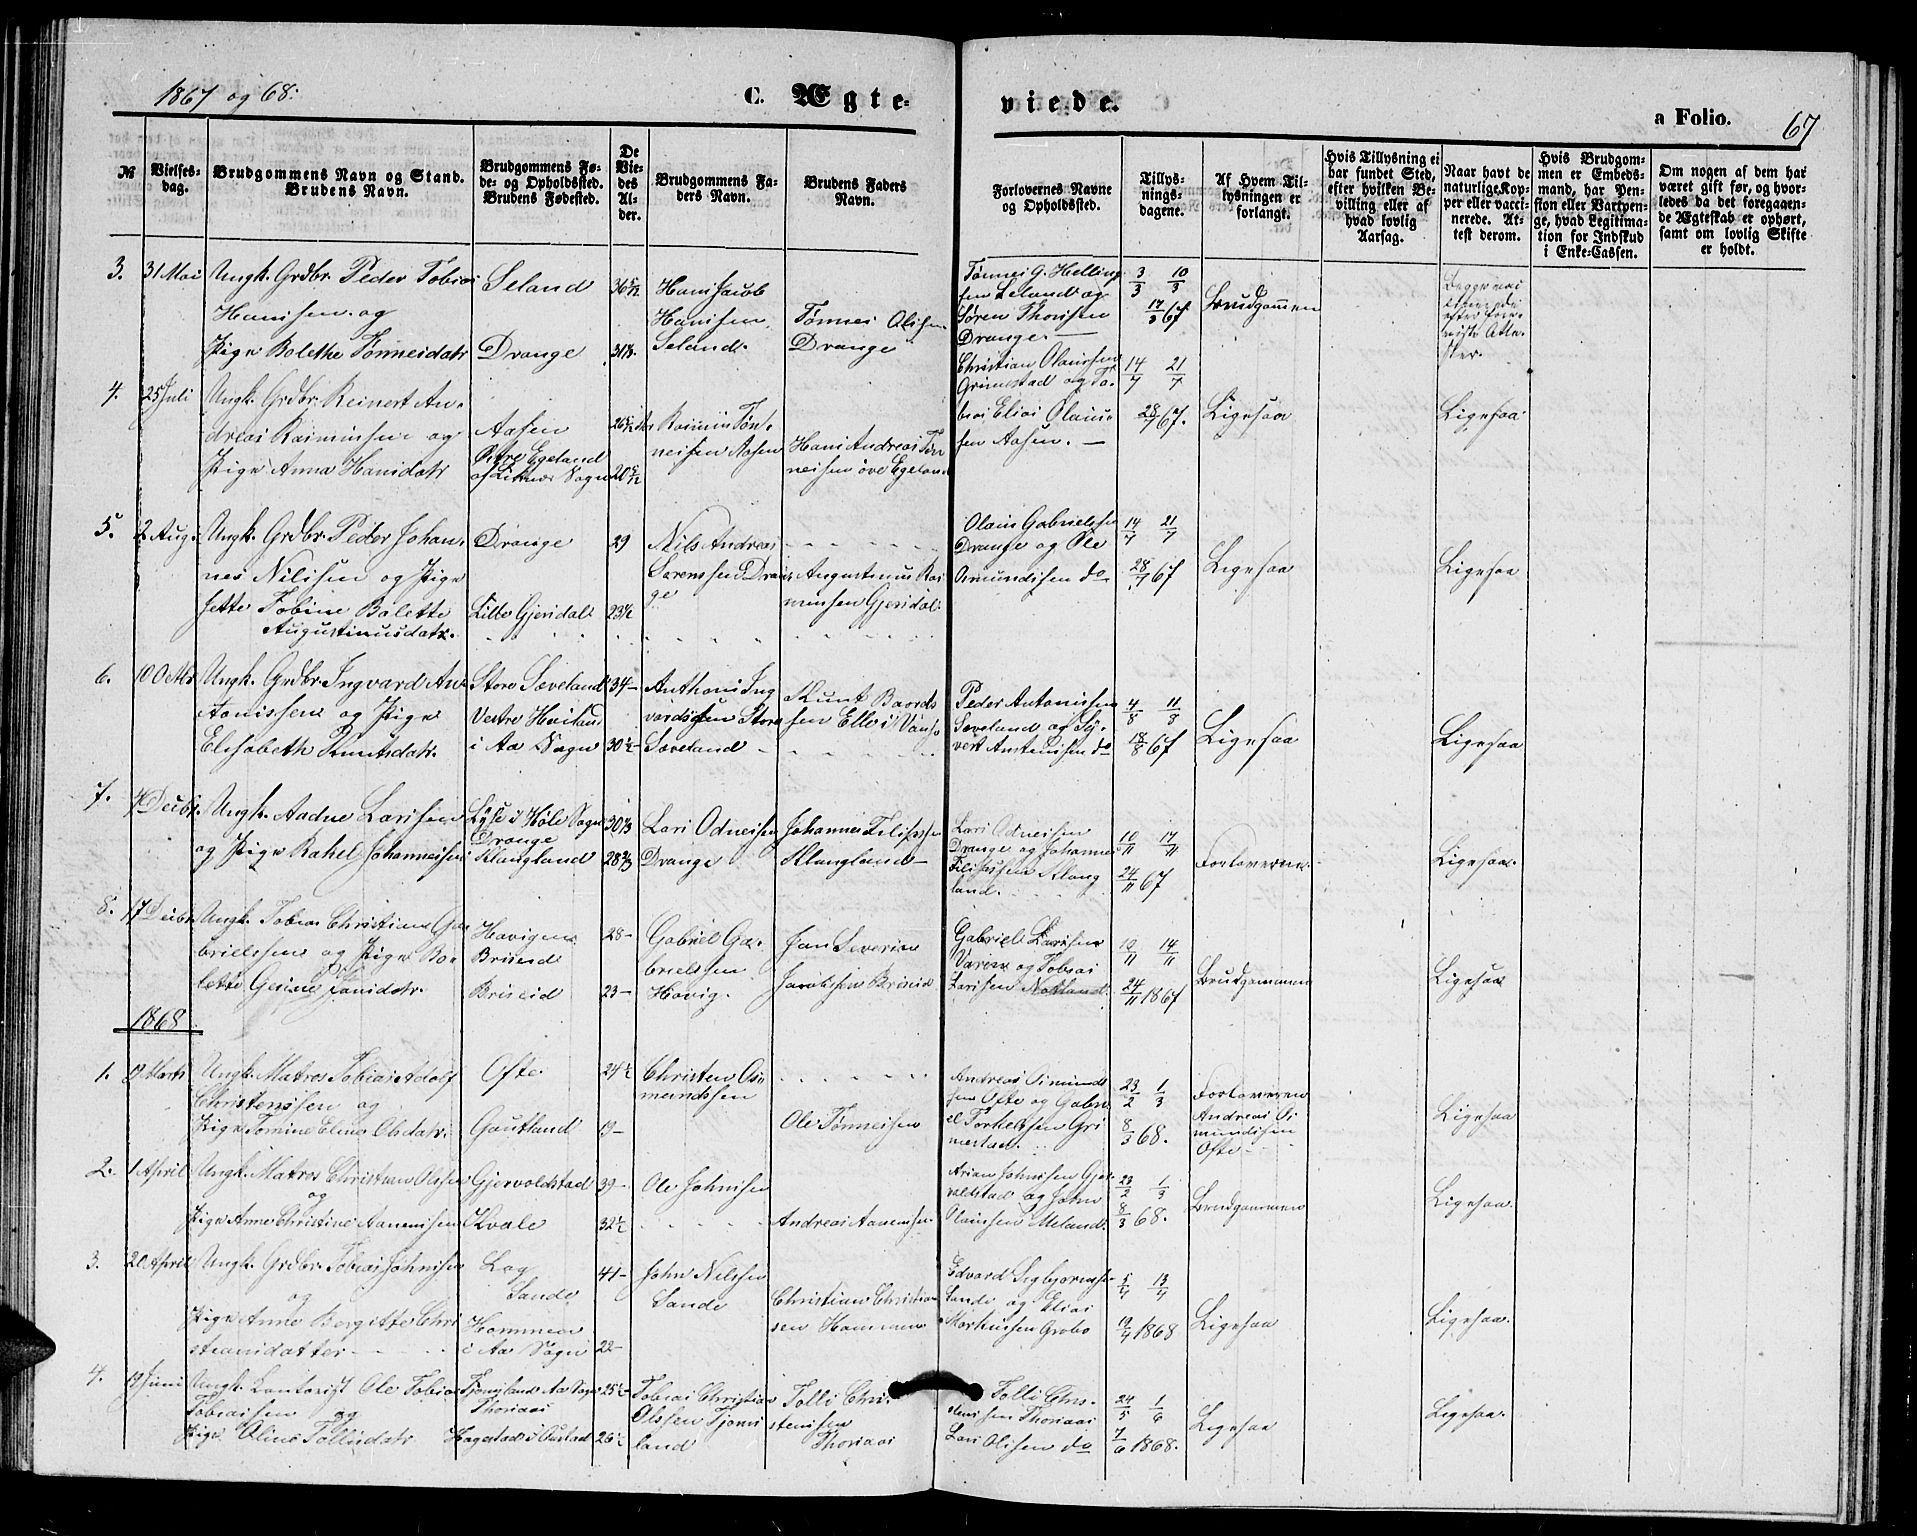 1867 og 68:
C. Ægte-
viede.
a Folio.
67
№
Vielses-
dag.
Brudgommens Navn og Stand.
Brudens Navn.
Brudgommens Fø-
de- og Opholdssted.
Brudens Fødested.
De
Vie-
des
Al-
der.
Brudgommens Fa-
ders Navn.
Brudens Faders
Navn.
Forlovernes Navne
og Opholdssted.
Tillys-
nings-
dagene.
Af Hvem Til-
lysningen er
forlangt.
Hvis Tillysning ei
har fundet Sted,
efter hvilken Be-
villing eller af
hvad lovlig
Aarsag.
Naar havt de
naturlige Kop-
per eller vacci-
nerede. At-
test derom.
Hvis Brudgom-
men er Embeds-
mand, har Pen-
sion eller Vartpen-
ge, hvad Legitima-
tion for Indskud
i Enke-Cassen.
Om nogen af dem har
været gift før, og hvor-
ledes da det foregaaen-
de Ægteskab er ophørt,
samt om lovlig Skifte
er holdt.
3. 31 Mai Ungk. Grdbr. Peder Tobias
Hansen og
Pige Bolethe Tønnesdatr
Seland
Drange
Hans Jacob
Hansen
Seland.
Tønnes Olsen
Drange
Tønnes G. Helling
sen Seland og
Søren Thorsen
Drange.
3/3 10/3
17/3 67
Brudgommen
4. 25 Juli Ungk. Grdbr. Reinert An-
dreas Rasmussen og
Pige Anna Hansdatr
Aasen
Østre Egeland
Rasmus Tøn-
nessen Aasen
Hans Andreas Tøn
nessen øvre Egeland
Christian Olaussen
Grimestad og To-
bias Elias Olaus-
sen Aasen.
14/7 21/7
28/7 67.
Ligesaa
Ligesaa
5. 2 Aug. Ungk. Grdbr. Peder Johan-
nes Nilssen og Pige
Tobine Bolette
Augustinusdatr.
Drange
Lille Gjersdal
29
23½
Nils Andreas
Sørensen Dran
ge
Augustinus Ras
mussen Gjersdal.
Olaus Gabrielsen
Drange og Ole
Osmundsen do
14/7 21/7
28/7 67
Ligesaa
Ligesaa
6. 10 Ungk. Grdbr. Ingvard An-
tonissen og Pige
Elisabeth Knutsdatr.
Store Sæveland
Vestre Hauland
i Aa Sogn
34-
30½-
Anthon Ing
vardsen Store
Sæveland
Knut Baards
sen Elle i Vanse
Peder Antonissen
Sæveland og Sy-
vert Antonissen do
4/8 11/8
18/8 67
Ligesaa
Ligesaa
7. 4 Decbr. Ungk. Aadne Larsen
og Pige Rahel Johannessen
Lyse i Høle Sogn
Drange
Klungland
Lars Odnessen
Drange
Johannes Filipsen
Klungland-
Lars Odnessen
Drange og Johannes
Filipsen Klung
land.
10/11 17/11
24/11 67
Forloverne
Ligesaa.
8. 17 Decbr. Ungk. Tobias Christian Ga-
brielssen og Pige Bo-
lette Gesine Jansdatr.
Havigen
Briseid
Briseid
28-
23-
Gabriel Ga-
brielssen
Havig.
Jan Severin
Jacobsen Briseid
Gabriel Larsen
og Tobias
Larsen
10/11 14/11
24/11 1867
Brudgommen
Ligesaa
1868
1. 9 Marts Ungk. Matros Tobias Adolf
Christenssen og
Pige Tomine Elene Olsdatr.
Ofte
Gautland
24½
19-
Christen Os-
mundssen
Ole Tønnessen
Andreas Osmunds
sen Ofte og Gabri
el Torkelsen Gri
mestad.
23/2 1/3
8/3 68.
Forloveren
Andreas Os
mundsen
Ofte
Ligesaa
2. 1 April Ungk. Matros Christian Olssen
og
Pige Anne Christine Aanensen
Gjervoldstad
Kvale
39-
32½
Ole Johnsen
Andreas Aanensen
Arian Johnsen Gjer-
valdstad og John
Olaussen Meland.
23/2 1/3
8/3 68.
Brudgommen
Ligesaa.
3. 20 April Ungk. Grdbr. Tobias Johnsen
og
Pige Anne Bergitte Chri
stiansdatter
Log
Sande
Hammen
i Aa Sogn
41-
22-
John Nilssen
Sande
Christian Christian
sen Hammen
Edvard Sigbjørnse
Sande og Elias
Markussen Grobo
5/4 13/4
19/4 1868
Ligesaa
Ligesaa.
4. 19 Juni Ungk. Kontorist Ole Tobias
Tobiassen og
Pige Oline Tollisdatr
Tjomsland Aa Sogn
Thorsaas
Hagestad i Oustad
25½-
26½
Tobias Christian
Olssen Tjoms
land
Tolli Chri-
stensen
Thorsaas
Tolli Chri-
stensen Thorsaas
Lars Olsen do
24/5 1/6
7/6 1868.
Ligesaa
Ligesaa.